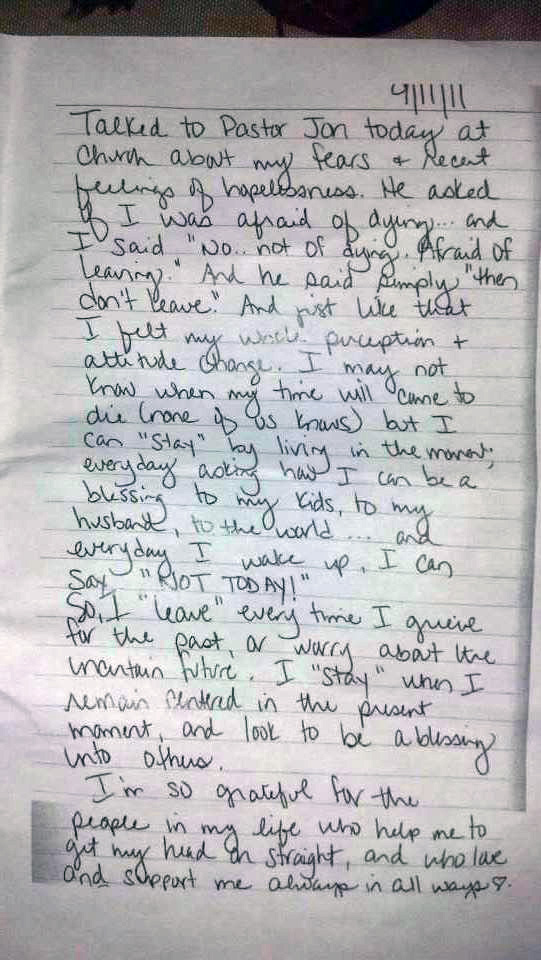 4/11/11
Talked to Pastor Jon today at
Church about my fears + recent
feelings of hopelessness. He asked
if I was afraid of dying... and
I said "No.. not of dying. Afraid of
leaving." And he said simply "then
don't leave." And just like that
I felt my whole perception +
attitude change. I may not
know when my time will come to
die (none of us knows) but I
can "stay" by living in the moment;
everyday asking how I can be a
blessing to my kids, to my
husband, to the world ... and
everyday I wake up, I can
say "NOT TODAY!"
So, I "leave" every time I grieve
for the past, or worry about the
uncertain future. I "stay" when I
remain centered in the present
moment, and look to be a blessing
unto others.
I'm so grateful for the
people in my life who help me to
get my head on straight, and who love
and support me always in all ways ♡.